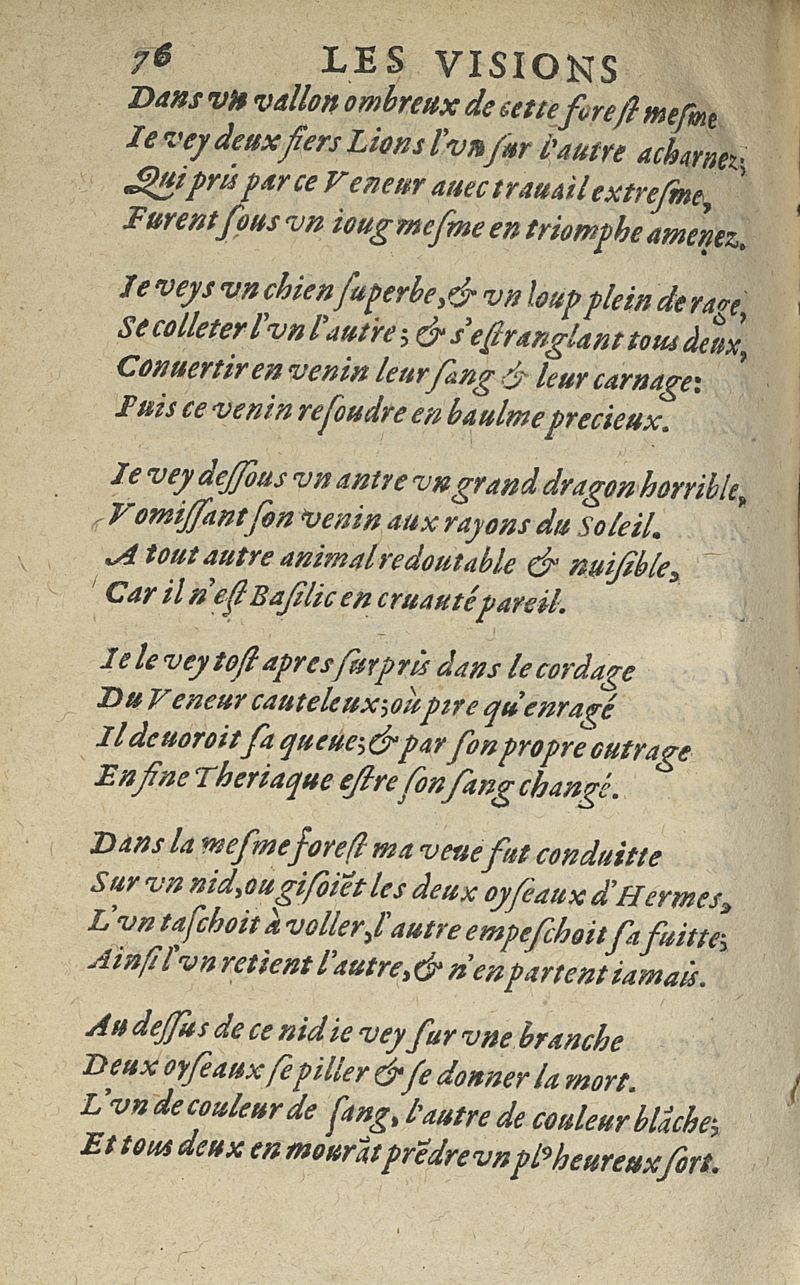 76 LES VISIONS
Dans vn vallon ombreux de cette foreſt meſme
Ie vey deux fiers Lions l'vn ſur l'autre acharnez;
Qui pris par ce Veneur auec trauail extreſme,
Furent ſous vn ioug meſme en triomphe amenez.
Ie veys vn chien ſuperbe, & vn loup plein de rage,
Se colleter l'vn l'autre; & s'eſtranglant tous deux,
Conuertir en venin leur ſang & leur carnage:
Puis ce venin reſoudre en baulme precieux.
Ie vey deſſous vn antre vn grand dragon horrible,
Vomiſſant ſon venin aux rayons du Soleil.
A tout autre animal redoutable & nuiſible,
Car il n'eſt Baſilic en cruauté pareil.
Ie le vey toſt apres ſurpris dans le cordage
Du Veneur cauteleux; où pire qu'enragé
Il deuoroit ſa queuë; & par ſon propre outrage
En fine Theriaque eſtre ſon ſang changé.
Dans la meſme foreſt ma veuë fut conduitte
Sur vn nid, ou giſoiẽt les deux oyſeaux d'Hermes,
L'vn taſchoit à voller, l'autre empeſchoit ſa fuitte;
Ainſi l'vn retient l'autre, & n'en partent iamais.
Au deſſus de ce nid ie vey ſur vne branche
Deux oyſeaux ſe piller & ſe donner la mort.
L'vn de couleur de ſang, l'autre de couleur blãche;
Et tous deux en mourãt prẽdre vn plꝰ heureux ſort.